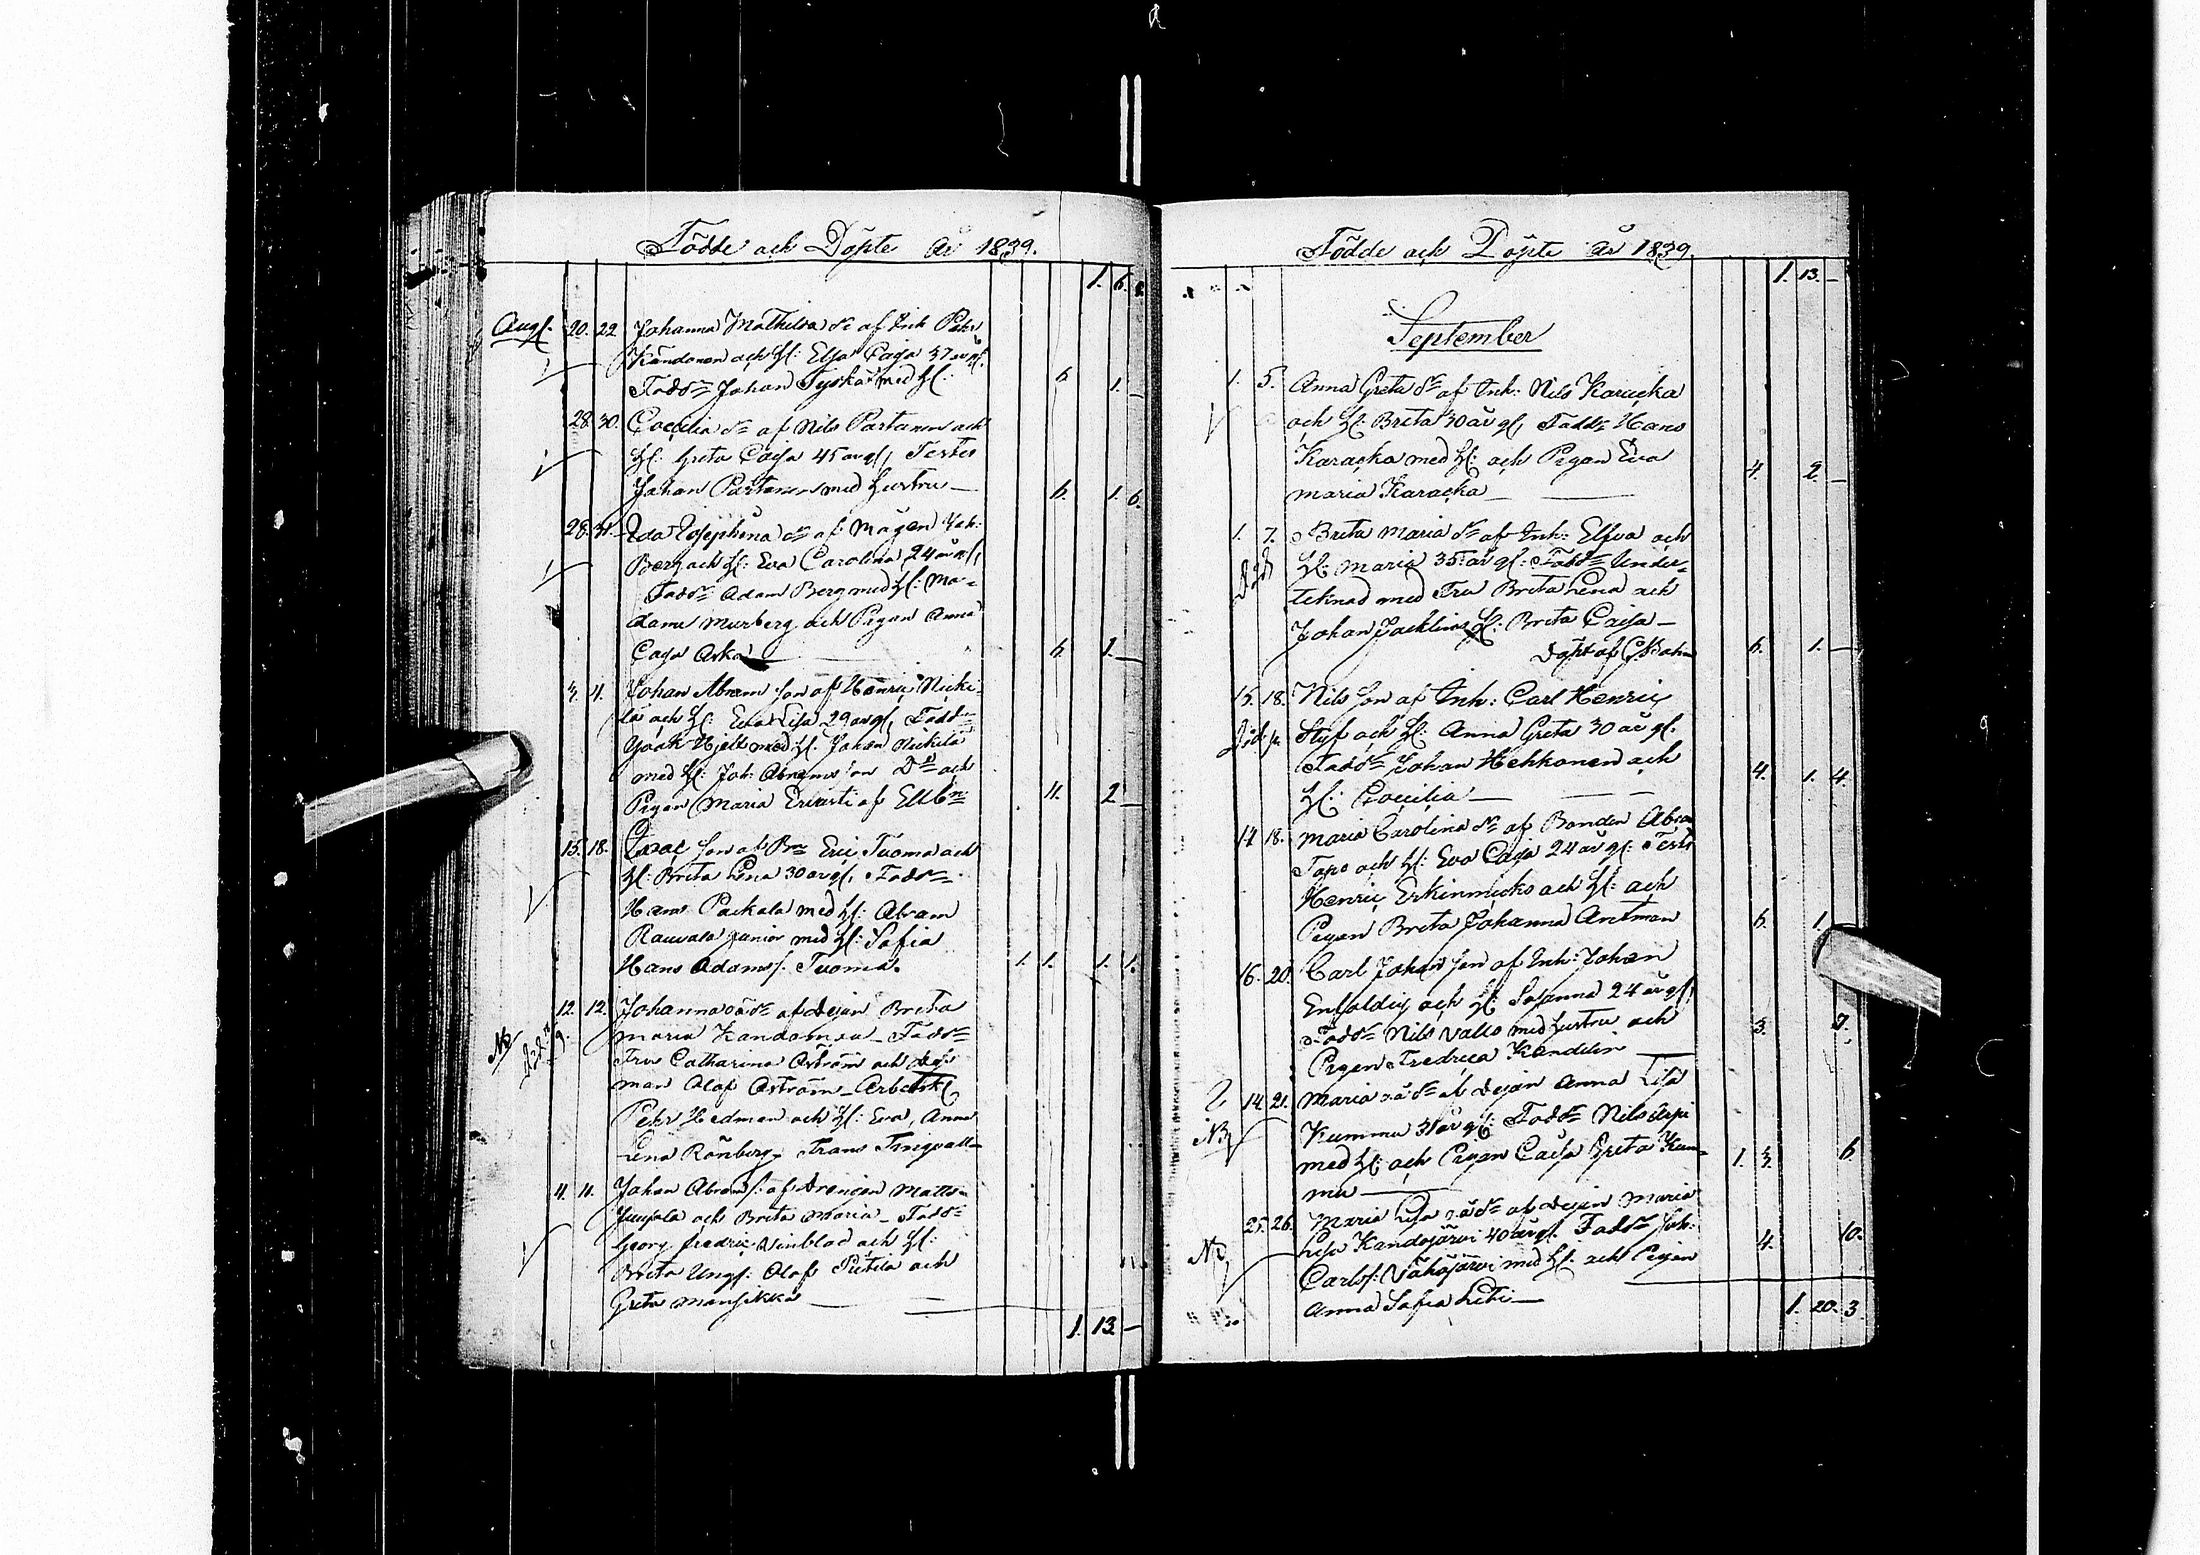 Födde och Döpte år 1839.
1. 6.
Aug. 20. 22 Johanna Mathilda dr af Inh Pehr
Kandonen och H: Elsa Caisa 37 år gl.
Fadd: Johan Tyskas med H: 6. 1. –
28. 30. Coecilia dr af Nils Partanen och
H: Greta Caisa 45 år gl, Testes
Johan Partanen med Hustru — 6. 1. 6.
28. 31. Ida Josephina dr af Mågen Joh:
Berg och H: Eva Carolina 24 år gl,
Fadd: Adam Berg med H: Ma-
dame Murberg och Pigan Anna
Caisa Aska — 6. 1. —
3. 4. Johan Abram son af Henric Nicki-
la och H: Eva Lisa 29 år gl, Fadd:
Isaak Hjelt med H: Johan Nickila
med H: Joh: Abrams son Do och
Pigan Maria Ervasti af 11. 2 –
15. 18. Isaac son af Bn Eric Tuoma och
H: Brita Lena 30 år gl, Fadd:
Hans Packala med H: Abram
Rauvala junior med H: Sofia
Hans Adams s. Tuoma. 1. 1. 1. 1.
12. 12. Johanna oä dr af depan Brita
NB Maria Kandonen – Fadd:
Fru Catharina Åström och
man Olof Åström – Arbetsk
Pehr Hedman och H: Eva, Anna
Lena Rönberg, Frans Tingvall
4. 11. Johan Abram s. af Drengen Matts
och Brita Maria – Fadd:
Georg Fredric Winblad och H:
Brita Ungs: Olof och
Greta Mansikka — —
1. 13 –
Födde och Döpte år 1839.
1. 13. –
September
1. 5. Anna Greta dr af Inh: Nils Karacka
och H: Brita 30 år gl, Fadd: Hans
Karacka med H: och Pigan Eva
Maria Karacka — — 4. 2. –
1. 7. Brita Maria dr af Inh: Elfva och
H: Maria 35 år gl: Fadd: Under-
teknad med Fru Brita Lena och
Johan H: Brita Caisa –
Döpt af 6. 1. –
15. 18. Nils son af Inh: Carl Henric
Styf och H: Anna Greta 30 år gl.
Fadd: Johan Hehkonen och
H: Coecilia — — 4. 1. 4.
14 18. Maria Carolina dr af Bonden Abra
Tapo och H: Eva Caisa 24 år gl: Test
Henric Erkinmicko och H: och
Pigan Brita Johanna Antman 6. 1.
16. 20. Carl Johan son af Inh: Johan
Enfaldig och H: Susanna 24 år gl,
Fadd: Nils Vallo med Hustru och 3. 7.
Pigan Fredrica Kandelin —
14. 21. Maria oä dr af depan Anna Lisa
NB Kummu 31 år gl: Fadd: Nils Arpi
med H: och Pigan Caisa Greta Kum- 1. 3. 6
mu —
25. 26. Maria Lisa oä dr af depan Maria
NB Lisa Kandojärvi 40 år gl. Fadd: Joh: 4. 10.
Carls s: Vähäjärvi med H: och Pigan
Anna Sofia Liti —
1. 20. 3